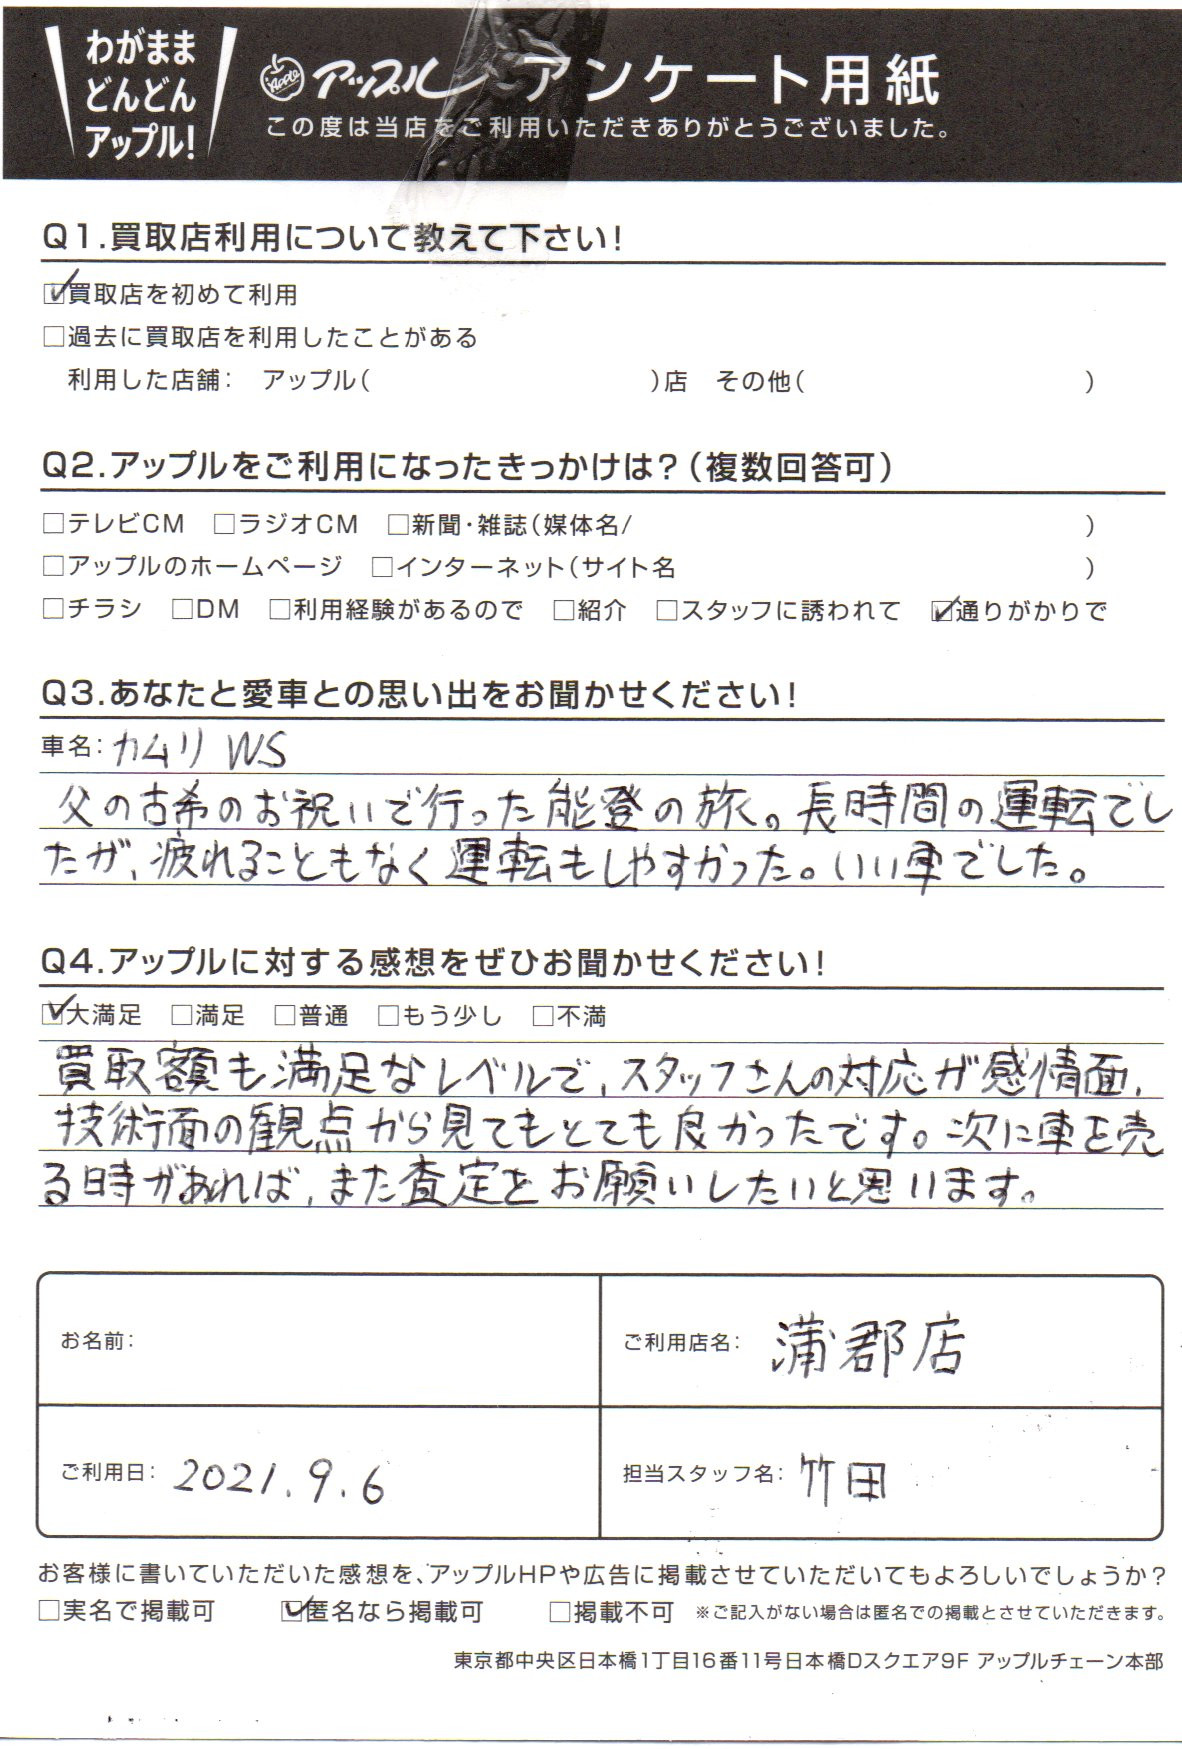 わがまま
どんどん
アップル!
Apple アップル アンケート用紙
この度は当店をご利用いただきありがとうございました。
Q1.買取店利用について教えて下さい!
☑買取店を初めて利用
□過去に買取店を利用したことがある
利用した店舗: アップル( )店 その他( )
Q2.アップルをご利用になったきっかけは?(複数回答可)
□テレビCM □ラジオCM □新聞・雑誌(媒体名/ )
□アップルのホームページ □インターネット(サイト名 )
□チラシ □DM □利用経験があるので □紹介 □スタッフに誘われて ☑通りがかりで
Q3.あなたと愛車との思い出をお聞かせください!
車名: カムリ WS
父の古希のお祝いで行った能登の旅。長時間の運転でし
たが、疲れることもなく運転もしやすかった。いい車でした。
Q4.アップルに対する感想をぜひお聞かせください!
☑大満足 □満足 □普通 □もう少し □不満
買取額も満足なレベルで、スタッフさんの対応が感情面、
技術面の観点から見てもとても良かったです。次に車を売
る時があれば、また査定をお願いしたいと思います。
お名前:
ご利用店名: 蒲郡店
ご利用日: 2021.9.6
担当スタッフ名: 竹田
お客様に書いていただいた感想を、アップルHPや広告に掲載させていただいてもよろしいでしょうか?
□実名で掲載可 ☑匿名なら掲載可 □掲載不可 ※ご記入がない場合は匿名での掲載とさせていただきます。
東京都中央区日本橋1丁目16番11号日本橋Dスクエア9F アップルチェーン本部